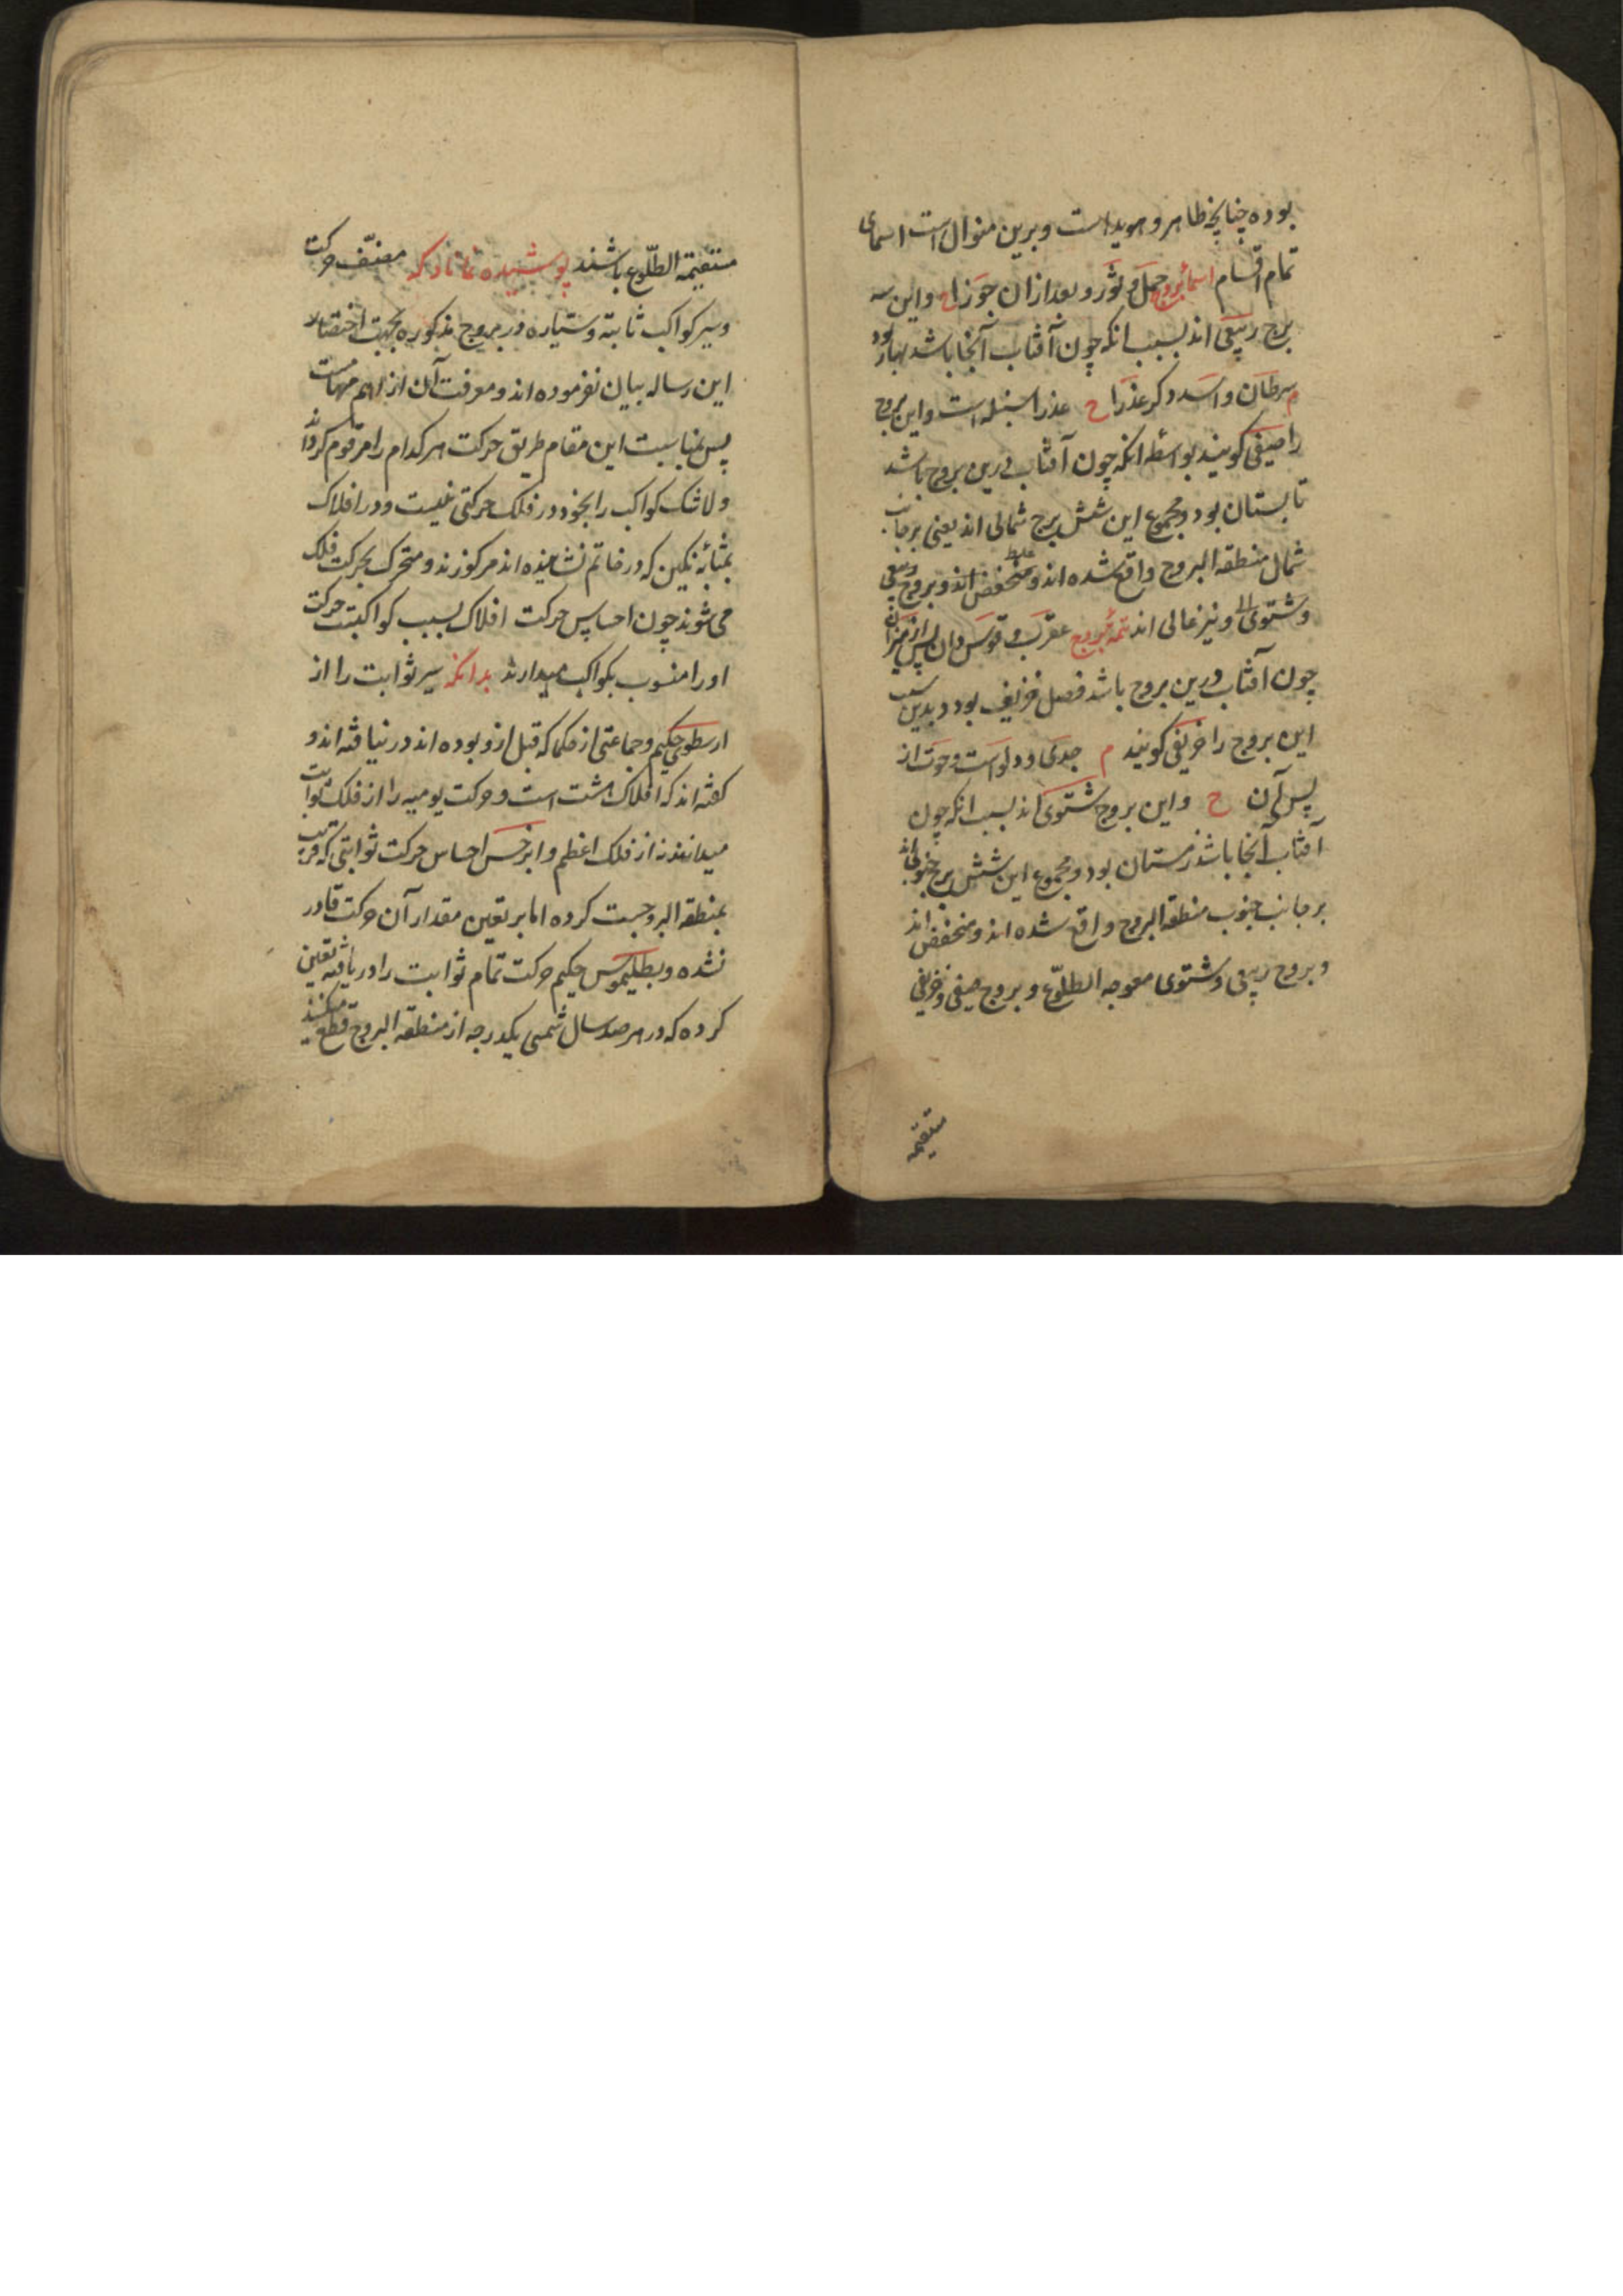 بوده چنانچه ظاهر و هویداست و برین منوال است اسمای
تمام اقسام اسماء بروج حمل و ثور و بعد ازان جوزا ح و این سه
برج ربیعی اند بسبب انکه چون آفتاب آنجا باشد بهار بود
م سرطان و اسد دکر عذرا ح عذرا سنبله است و این بروج
را صیفی کویند بواسطه انکه چون آفتاب درین بروج باشد
تابستان بود و مجموع این شش برج شمالی اند یعنی بر جانب
شمال منطقه البروج واقع شده اند و منخفض اند و بروج ربیعی
و شتوی و نیز عالی اند تتمه بروج عقرب و قوس دان پس از میزان
چون آفتاب درین بروج باشد فصل خریف بود و بدین سبب
این بروج را خریفی کویند م جدی و دلو است و حوت از
پس آن ح و این بروج شتوی اند بسبب انکه چون
آفتاب آنجا باشد زمستان بود و مجموع این شش برج جنوبی اند
بر جانب جنوب منطقه البروج واقع شده اند و منخفض اند
و بروج ربیعی و شتوی معوجه الطلوع و بروج صیفی و خریفی
مستقیمه
مستقیمة الطلوع باشند پوشیده نماناد که مصنف حرکت
و سیر کواکب ثابته و سیاره در بروج مذکوره بجهت اختصار
این رساله بیان نفرموده اند و معرفت آن از اهم مهمات
پس بمناسبت این مقام طریق حرکت هر کدام را مرقوم کرداند
ولا شک کواکب را بخود در فلک حرکتی نیست و در افلاک
بمثابه نکین که در خاتم نشانیده اند مرکوزند و متحرک بحرکت فلک
می شوند چون احساس حرکت افلاک بسبب کواکبست حرکت
او را منسوب بکواکب میدارند بدانکه سیر ثوابت را از
ارسطوی حکیم و جماعتی از حکما که قبل ازو بوده اند در نیافته اند و
کفته اند که افلاک هشت است و حرکت یومیه را از فلک ثوابت
میدانند نه از فلک اعظم و ابرخس احساس حرکت ثوابتی که قریب
بمنطقه البروجست کرده اما بر تعین مقدار آن حرکت قادر
نشده و بطلیموس حکیم حرکت تمام ثوابت را دریافته تعین
کرده که در هر صد سال شمسی یکدرجه از منطقه البروج قطع میکنند